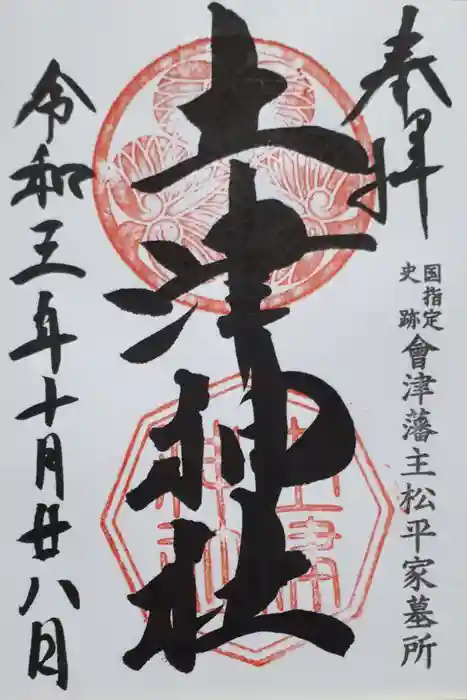 奉拝
国指定
史跡
會津藩主松平家墓所
土津神社
令和三年十月廿八日